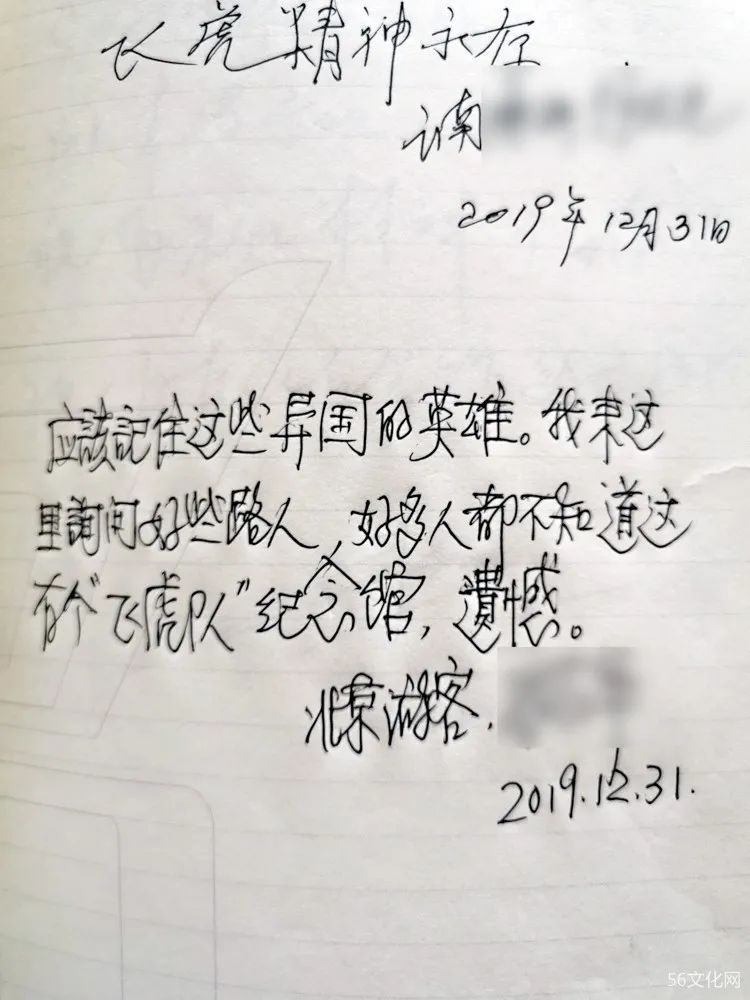 飞虎精神永在.
南
2019年12月31日
应该記住这些异国的英雄。我来这
里詢问好些路人,好多人都不知道这
有个“飞虎队”纪念馆,遺憾。
北京游客.
2019.12.31.
56文化网